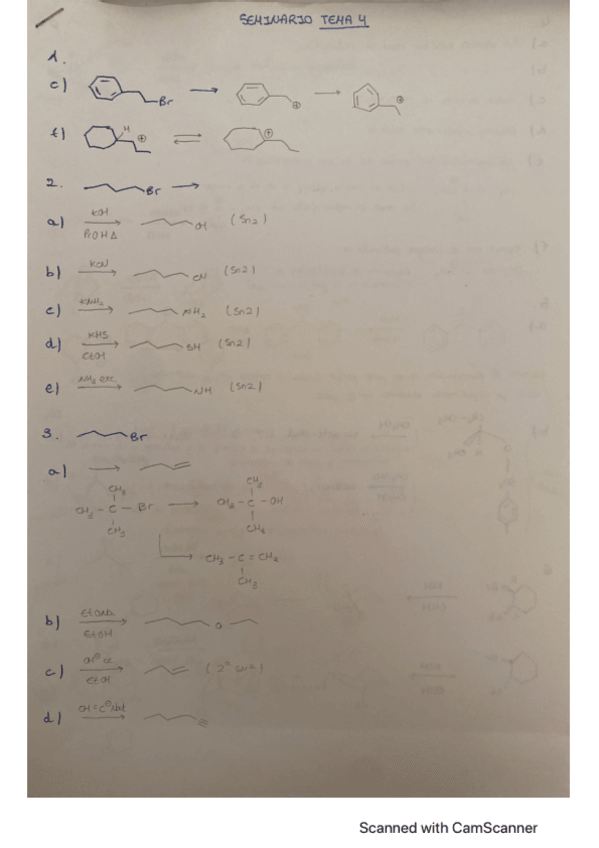 SEMINARIO TEMA 4
1.
c) Br → ⊕ → ⊕
f) H ⊕ ⇌ ⊕
2. Br →
a) KOH OH (Sn2)
PrOH Δ
b) KCN CN (Sn2)
c) KNH2 NH2 (Sn2)
d) KHS SH (Sn2)
EtOH
e) NH3 exc. NH (Sn2)
3. Br
a) →
CH3 CH3
CH3 - C - Br → CH3 - C - OH
CH3 CH3
CH3 - C = CH2
CH3
b) EtONa O
EtOH
c)
EtOH
d)
Scanned with CamScanner